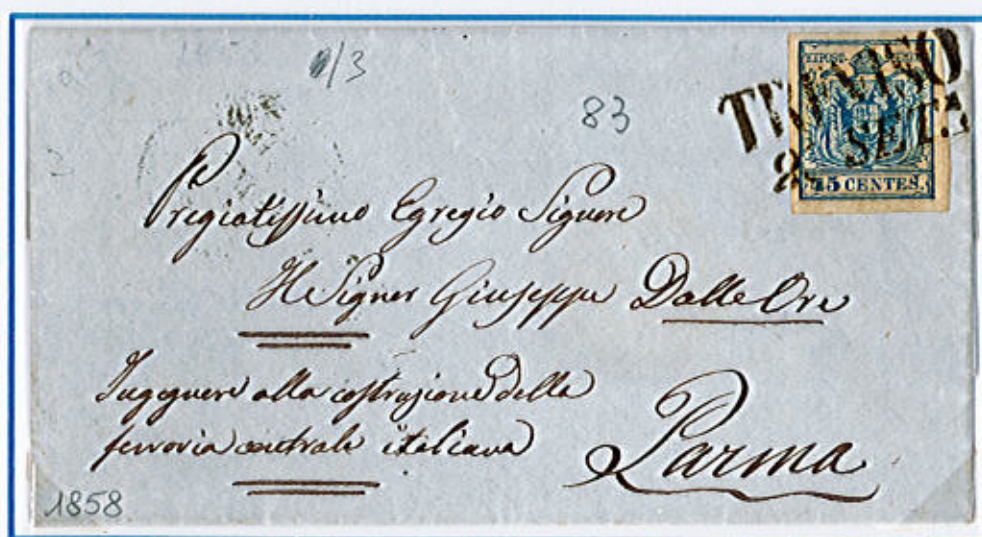 1/3
83
TREVISO
SETT.
45 CENTES.
Pregiatissimo Egregio Signore
Il Signor Giuseppe Dalle Ore
Ingegnere alla costruzione della
ferrovia centrale italiana
Parma
1858